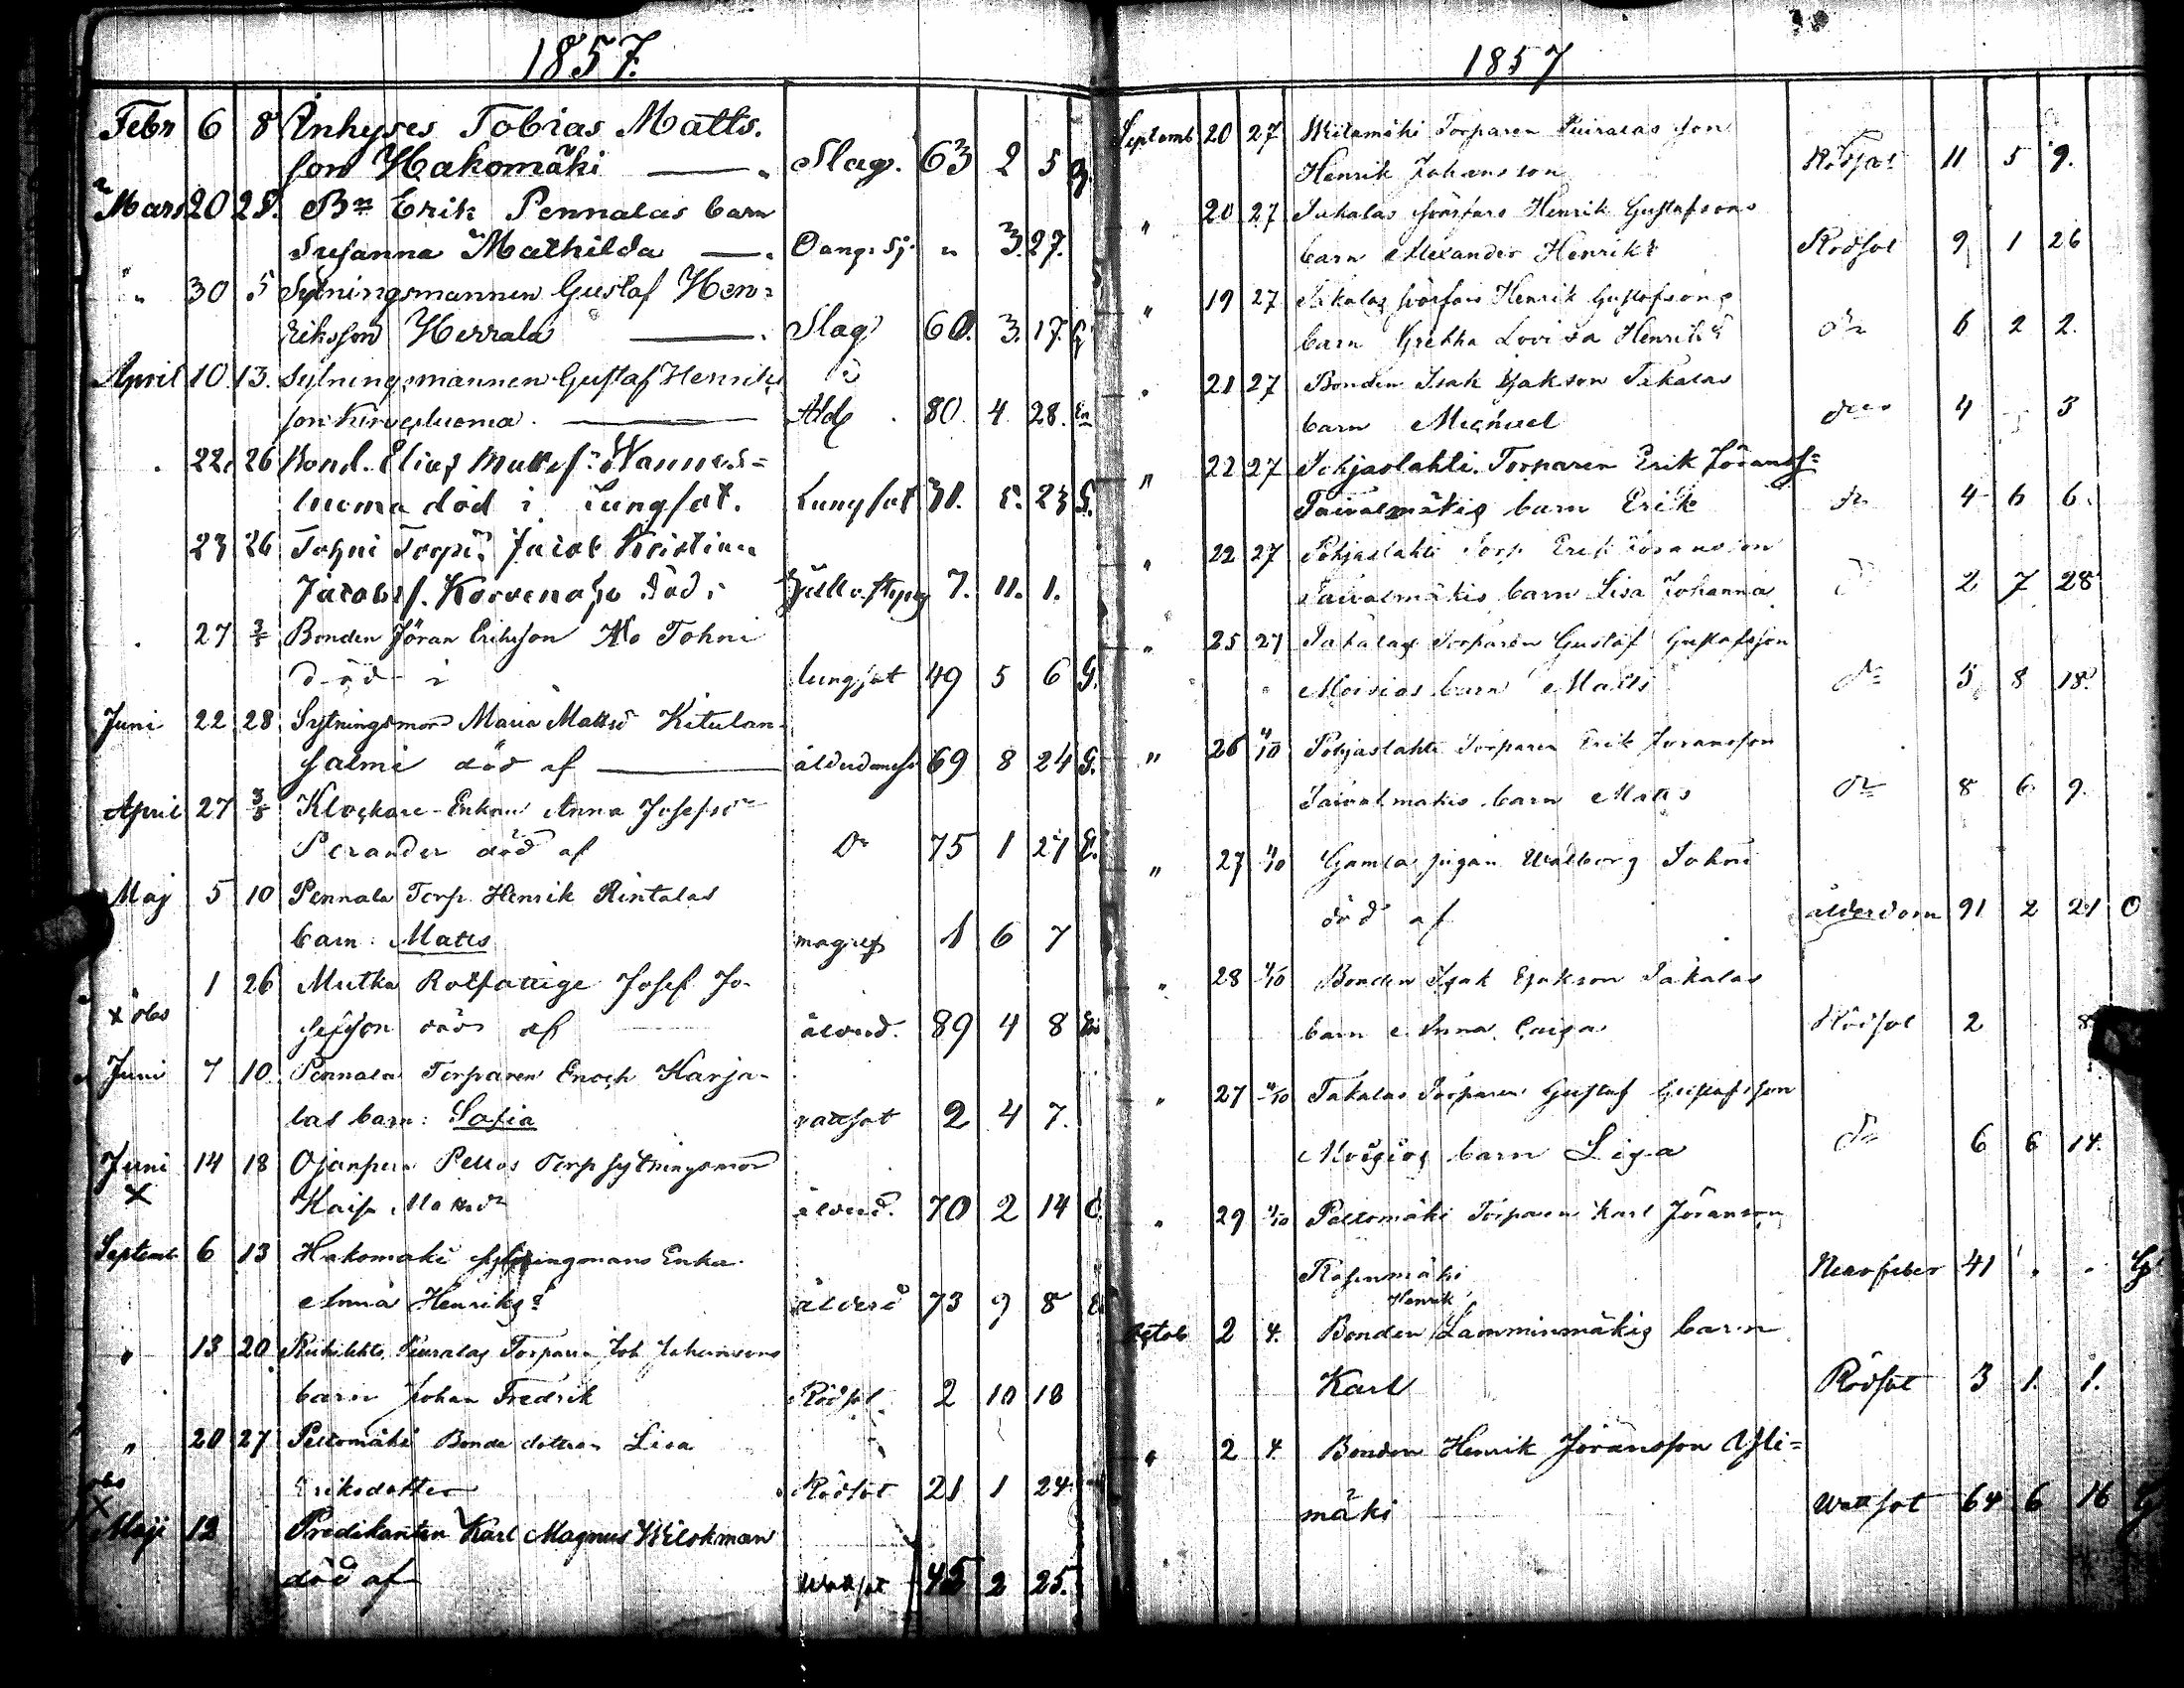 1857.
Febr 6 8 Inhyses Tobias Matts.
son Hakomäki — Slag. 63 2 5 G.
Mars 20 28. Bn Erik Pennalas barn
Susanna Mathilda — Oang. Sj. " 3. 27.
" 30 5 Sytningsmannen Gustaf Hen-
riksson Herrala — Slag 60. 3. 17. G
April 10. 13. Sytningsmannen Gustaf Henriks
son Kirvesluoma — Åld. 80. 4 28. En
. 22. 26 Bond. Elias Mattsf: Wannas-
luoma död i Lungsot. Lungsot 31. 5. 23 G.
23 26 Tohni Torp. Jacob Kristian
Jacobsf. Korvenoja död i Håll o. Styng 7. 11. 1.
. 27 3/5 Bonden Jöran Eriksson Ala Tohni
död i lungsot 49 5 6 G.
Juni 22 28 Sytningsmor Maria Mattsd Kitulan-
salmi död af — ålderdomssv. 69 8 24 G.
April 27 3/5 Klockare-Enkan Anna Josefsd
Perander död af Do 75 1 27 E.
Maj 5 10 Pennala Torp. Henrik Rintalas
barn: Matts magref 1 6 7
1 26 Mutka Rotfattige Josef Jo-
x obs
sefsson död af ålderd. 89 4 8 En
Juni 7 10 Pennala Torparen Enoch Karja-
las barn: Sofia vattsot 2 4 7.
Juni 14 18 Ojanperä Peltos Torp sytningsmor
x Kaisa Mattsdr ålderd. 70 2 14 E
Septemb. 6 13 Hakomäki sytningsmans Enka
Anna Henriksd ålderd 73 9 8 E
" 13 20 Puiralas Torparen Joh Johanssons
barn Johan Fredrik Rödsot. 2 10 18
" 20 27 Peltomäki Bonde dottern Lisa
obs Eriksdotter Rödsot 21 1 24
x Maji 12 Predikanten Karl Magnus Wilskman
död af Wattsot 45 2 25.
1857
Septemb 20 27 Torparen Puiralas son
Henrik Johansson Rödsot 11 5 9.
" 20 27 Takalas Henrik Gustafsons
barn Alexander Henriks Rödsot 9 1 26
" 19 27 Takalas Henrik Gustafsons
barn Gretha Lovisa Henriksd do 6 2 2.
" 21 27 Bonden Isak Isakson Takalas
barn Michael do 4 3
" 22 27 Pohjaslahti Torparen Erik Jöransf-
Taivalmäkis barn Erik do 4 6 6.
" 22 27 Pohjaslahti Torp Erik Joransson
Taivalmäkis barn Lisa Johanna do 2 7 28
" 25 27 Takalas Torparen Gustaf Gustafsson
Moisios barn Matts do 5 8 18.
" 26 4/10 Pohjaslahti Torparen Erik Joransson
Taivalmakis barn Matts do 8 6 9.
" 27 4/10 Gamla pigan Walborg Tohni
död af ålderdom 91 2 21 O
" 28 4/10 Bonden Isak Isakson Takalas
barn Anna Caisa Rödsot 2 8
" 27 4/10 Takalas Torparen Gustaf Gustafsson
Moisios barn Lisa do 6 6 14.
" 29 4/10 Peltomäki Torparen Karl Jöranson
Rosenmäki Nervfeber 41 . . G
Henrik
Octob 2 4. Bonden Lamminmäkis barn
Karl Rödsot 3 1. 1.
" 2 4. Bonden Henrik Jöransson Yli-
mäki Wattsot 64 6 16 G